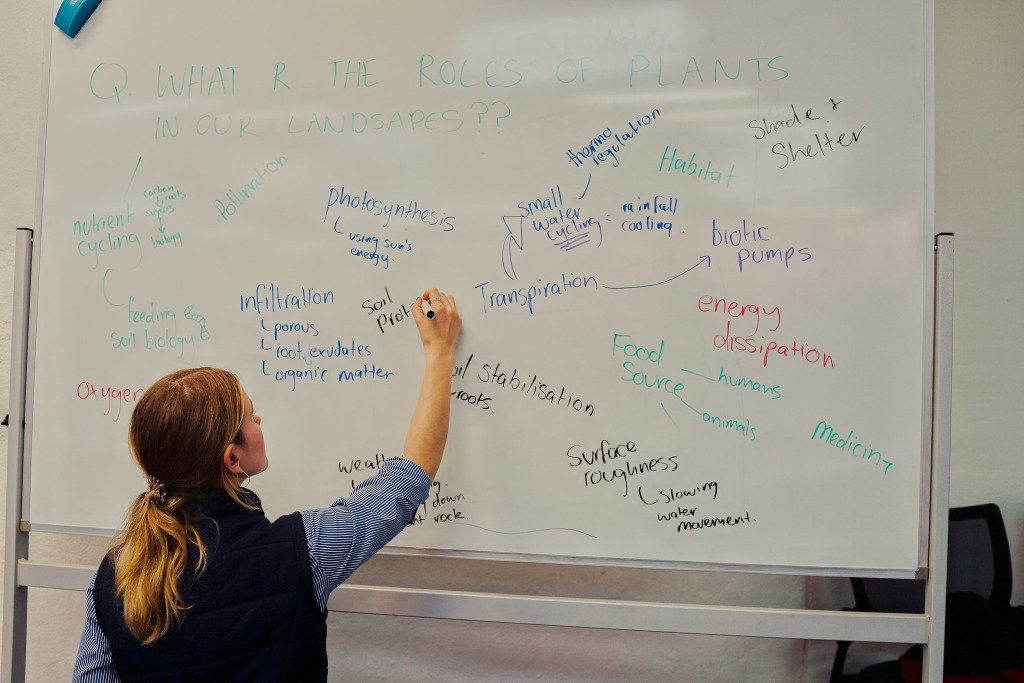 Q. WHAT R THE ROLES OF PLANTS
IN OUR LANDSAPES??
nutrient
cycling
carbon
roots
sugars
biology
feeding
soil biology
Oxygen
Pollination
photosynthesis
using sun's
energy.
infiltration
porous
root exudates
organic matter
soil
prot
soil stabilisation
roots.
down
rock.
thermo
regulation
small
water
cycling
= rainfall
cooling.
Transpiration
biotic
pumps
Habitat
Shade +
Shelter
energy
dissipation
Food
Source
humans
animals
Medicine
Surface
roughness
slowing
water
movement.